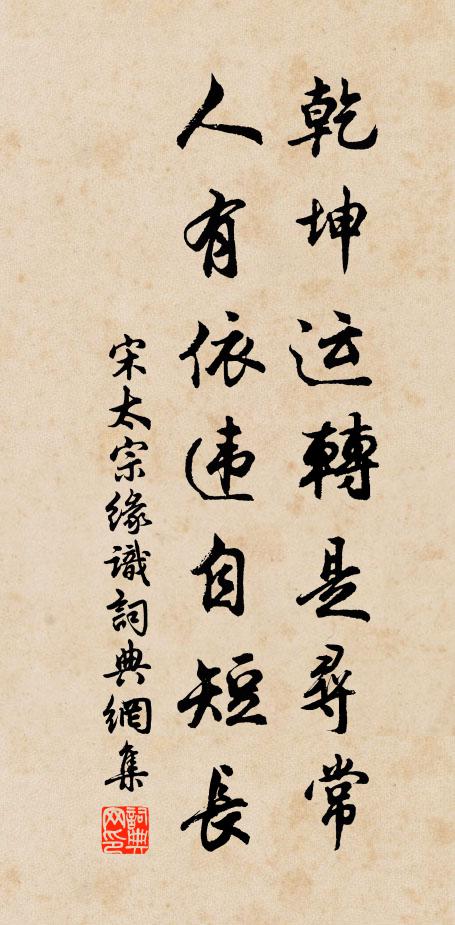 乾坤运轉是尋常
人有依违自短長
宋太宗緣識詞典網集
詞典网印